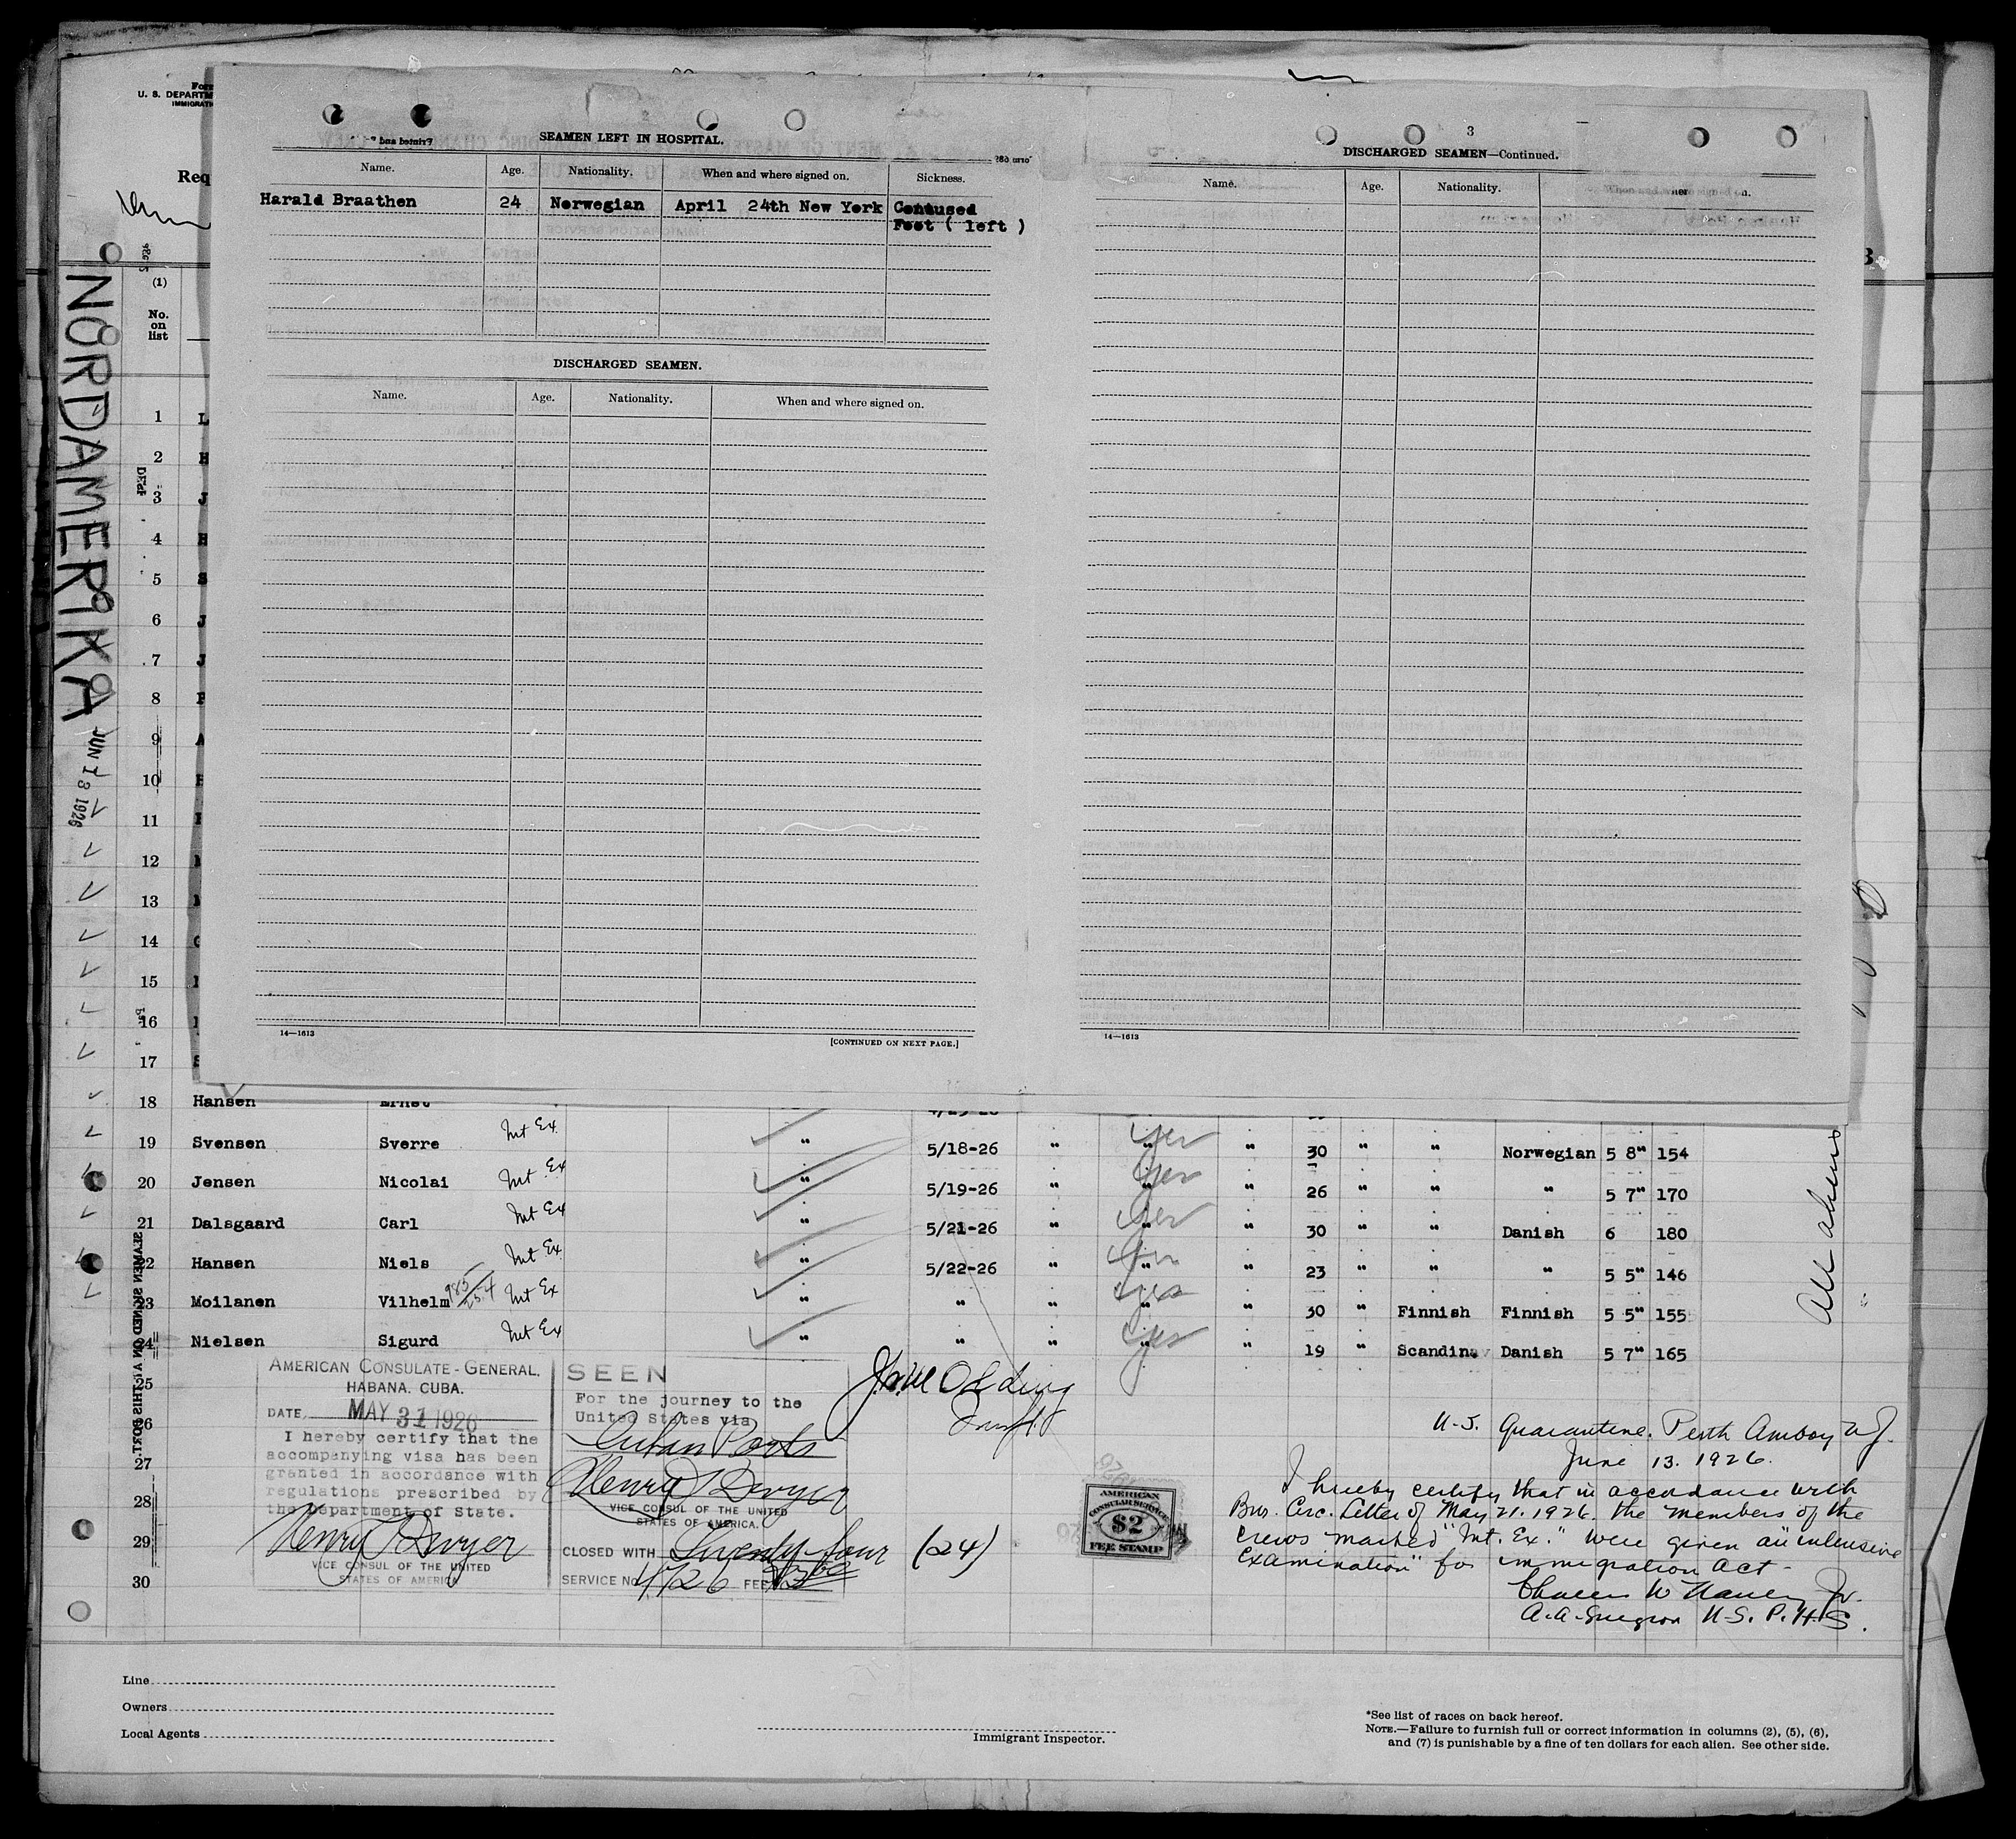 U. S. DEPARTM
IMMIGRATI
Req
NORDAMERIKA
JUN 13 1926
SEAMEN LEFT IN HOSPITAL.
Name. Age. Nationality. When and where signed on. Sickness.
Harald Braathen 24 Norwegian April 24th New York Contused
Foot ( left )
DISCHARGED SEAMEN.
Name. Age. Nationality. When and where signed on.
14—1613
[CONTINUED ON NEXT PAGE.]
3
DISCHARGED SEAMEN—Continued.
Name. Age. Nationality. When and where signed on.
14—1613
(1)
No.
on
list
1 L
2 H
3 J
4 H
5 S
6 J
7 J
8
9 A
10
11
12
13
14
15
16
17 S
18 Hansen Ernst
19 Svensen Sverre Int Ex " 5/18-26 " yes " 30 " " Norwegian 5 8" 154
20 Jensen Nicolai Int Ex " 5/19-26 " yes " 26 " " " 5 7" 170
21 Dalsgaard Carl Int Ex " 5/21-26 " yes " 30 " " Danish 6 180
22 Hansen Niels Int Ex " 5/22-26 " yes " 23 " " " 5 5" 146
23 Moilanen Vilhelm 985/254 Int Ex " " " yes " 30 " Finnish Finnish 5 5" 155
24 Nielsen Sigurd Int Ex " " " yes " 19 " Scandinav Danish 5 7" 165
25
26
27
28
29
30
All aliens
SEAMEN SIGNED ON AT THIS PORT.
AMERICAN CONSULATE-GENERAL,
HABANA, CUBA.
DATE, MAY 31 1926
I hereby certify that the
accompanying visa has been
granted in accordance with
regulations prescribed by
the Department of State.
Henry Dwyer
VICE CONSUL OF THE UNITED
STATES OF AMERICA
SEEN
For the journey to the
United States via
Cuban Ports
Henry Dwyer
VICE CONSUL OF THE UNITED
STATES OF AMERICA.
CLOSED WITH Twenty-four (24)
SERVICE NO. 4726 FEE
AMERICAN
CONSULAR SERVICE
$2
FEE STAMP
U.S. Quarantine. Perth Amboy N.J.
June 13. 1926.
I hereby certify that in accordance with
Bur. Circ. Letter of May 21. 1926. the members of the
crews marked "Int. Ex." were given an "intensive
examination" for immigration act-
Charles W Jr.
A.A. Surgeon U.S.P.H.S.
Line
Owners
Local Agents
Immigrant Inspector.
*See list of races on back hereof.
NOTE.—Failure to furnish full or correct information in columns (2), (5), (6),
and (7) is punishable by a fine of ten dollars for each alien. See other side.